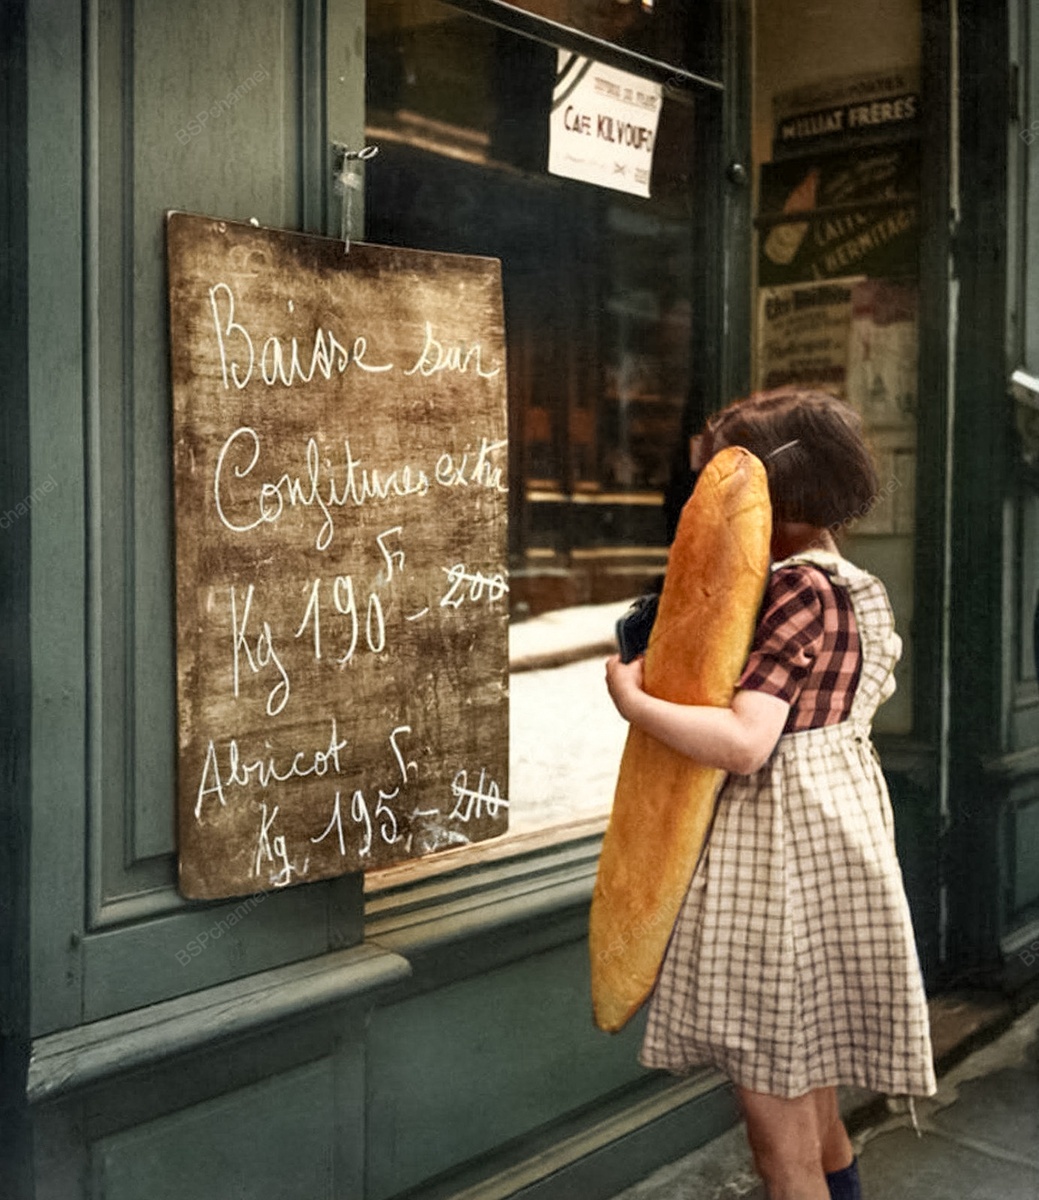 Baisse sur
Confitures extra
Kg 190F - 200
Abricot
Kg 195F - 210
CAFE KILVOUFO
MILLIAT FRERES
L'HERMITAGE
BSPchannel